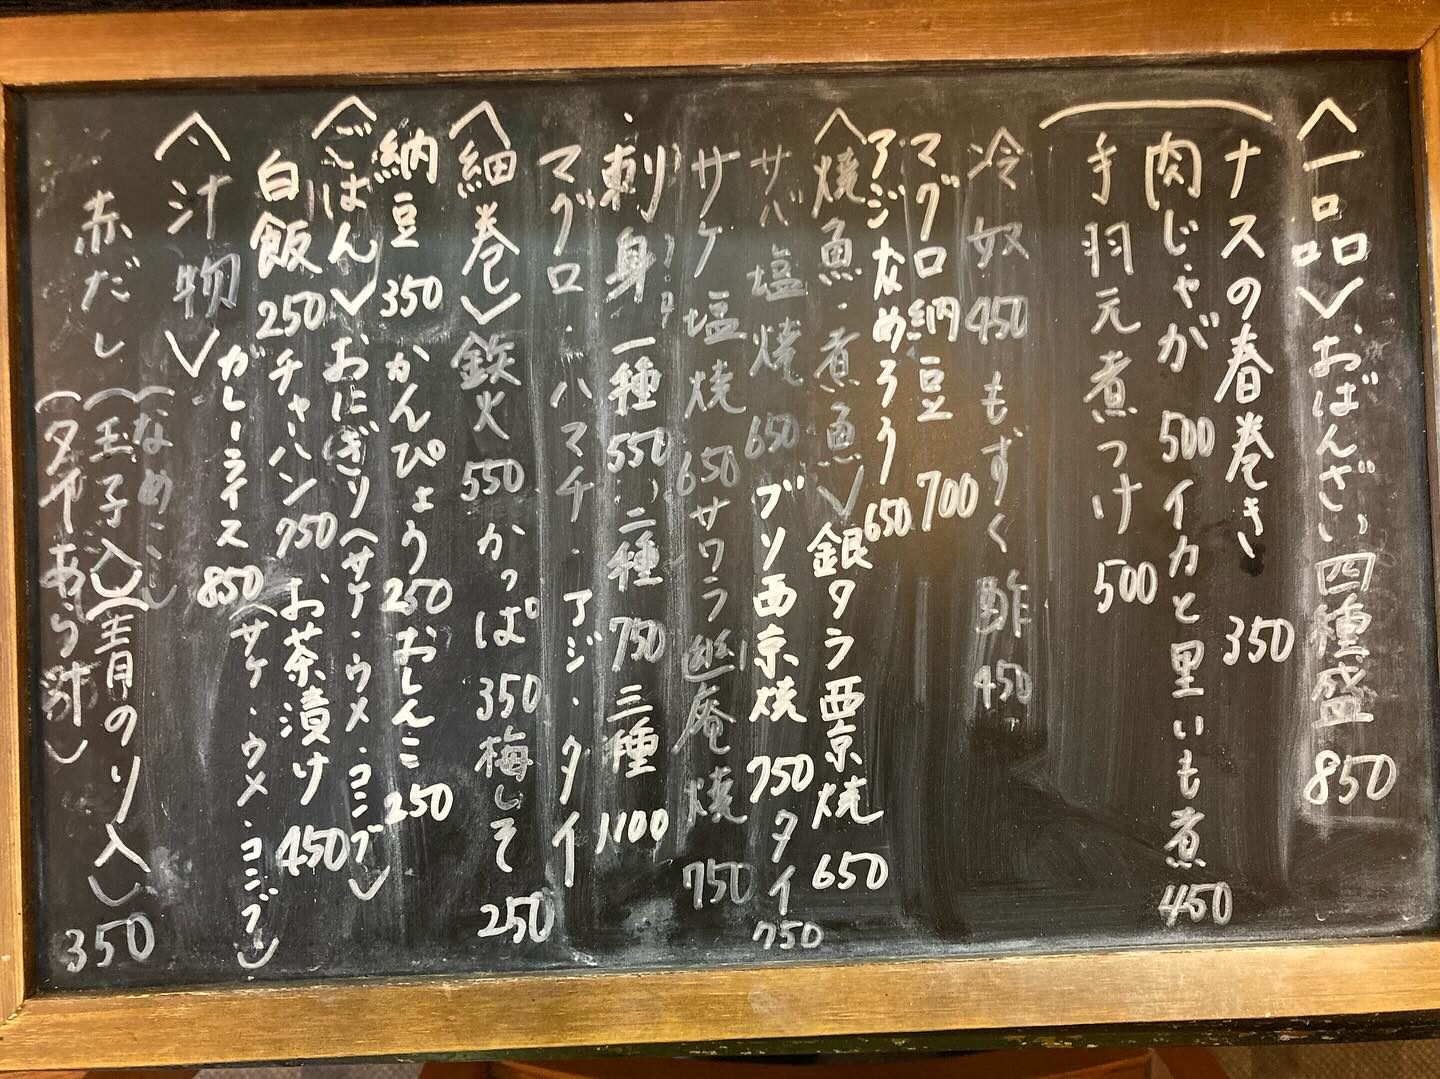 〈一品〉おばんざい四種盛 850
ナスの春巻き 350
肉じゃが 500 イカと里いも煮 450
手羽元煮つけ 500
冷奴 450 もずく酢 450
マグロ納豆 700
アジなめろう 650
〈焼魚・煮魚〉銀タラ西京焼 650
サバ塩焼 650 ブリ西京焼 750 タイ 750
サケ塩焼 650 サワラ幽庵焼 750
刺身 一種 550 二種 750 三種 1100
マグロ・ハマチ・アジ・タイ
〈細巻〉鉄火 550 かっぱ 350 梅しそ 250
納豆 350 かんぴょう 250 おしんこ 250
〈ごはん〉おにぎり(サケ・ウメ・コンブ)
白飯 250 チャーハン 750 お茶漬け 450
カレーライス 850 (サケ・ウメ・コンブ)
〈汁物〉
赤だし (なめこ)
(玉子入)(青のり入)
(タイあら汁) 350